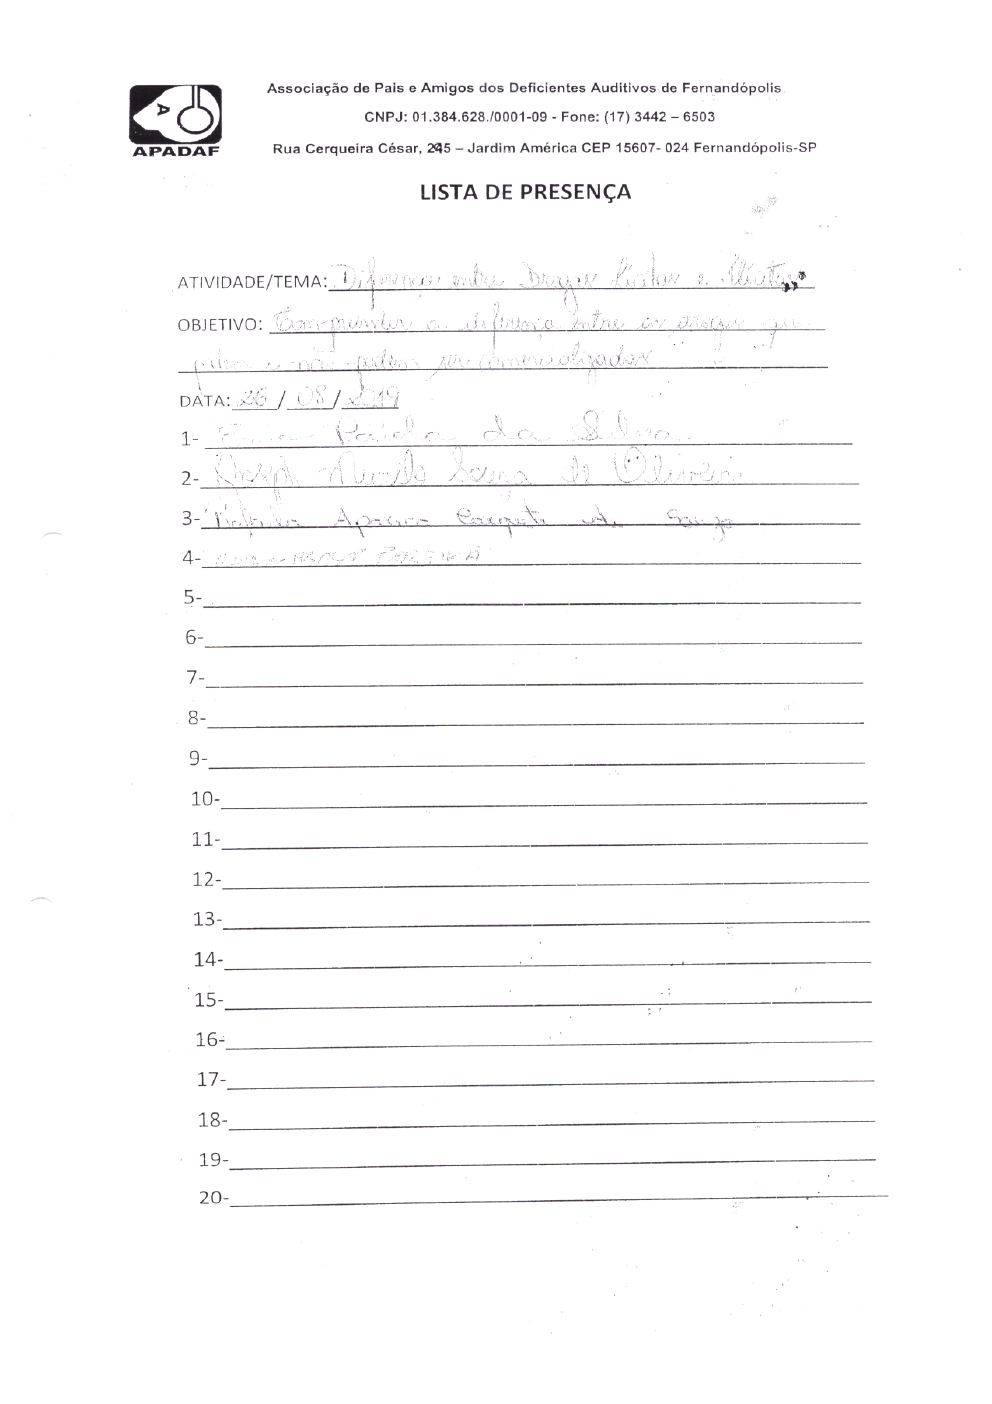 Associação de Pais e Amigos dos Deficientes Auditivos de Fernandópolis
CNPJ: 01.384.628./0001-09 - Fone: (17) 3442 – 6503
APADAF
Rua Cerqueira César, 245 – Jardim América CEP 15607- 024 Fernandópolis-SP
LISTA DE PRESENÇA
ATIVIDADE/TEMA: Diferença entre Drogas Lícitas e Ilícitas
OBJETIVO: Compreender a diferença entre as drogas que
podem e não podem ser comercializadas
DATA: 26 / 08 / 2019
1- da Silva
2- Murilo de Oliveira
3- Souza
4-
5-
6-
7-
8-
9-
10-
11-
12-
13-
14-
15-
16-
17-
18-
19-
20-